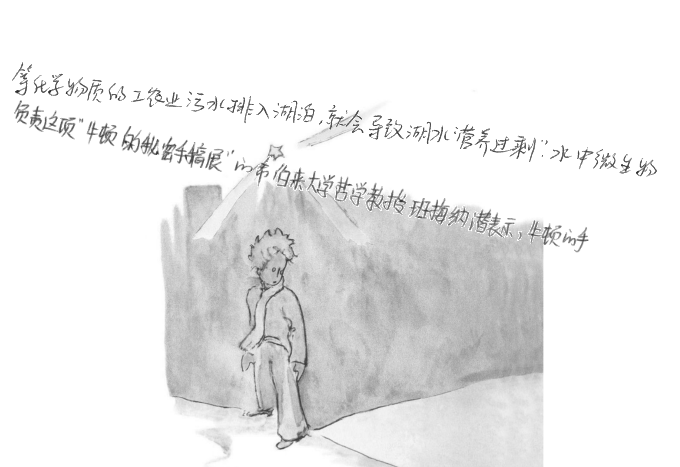 等化学物质的工农业污水排入湖泊，就会导致湖水“营养过剩”：水中微生物
负责这项“牛顿的秘密手稿展”的希伯来大学哲学教授班梅纳潜表示，牛顿的手